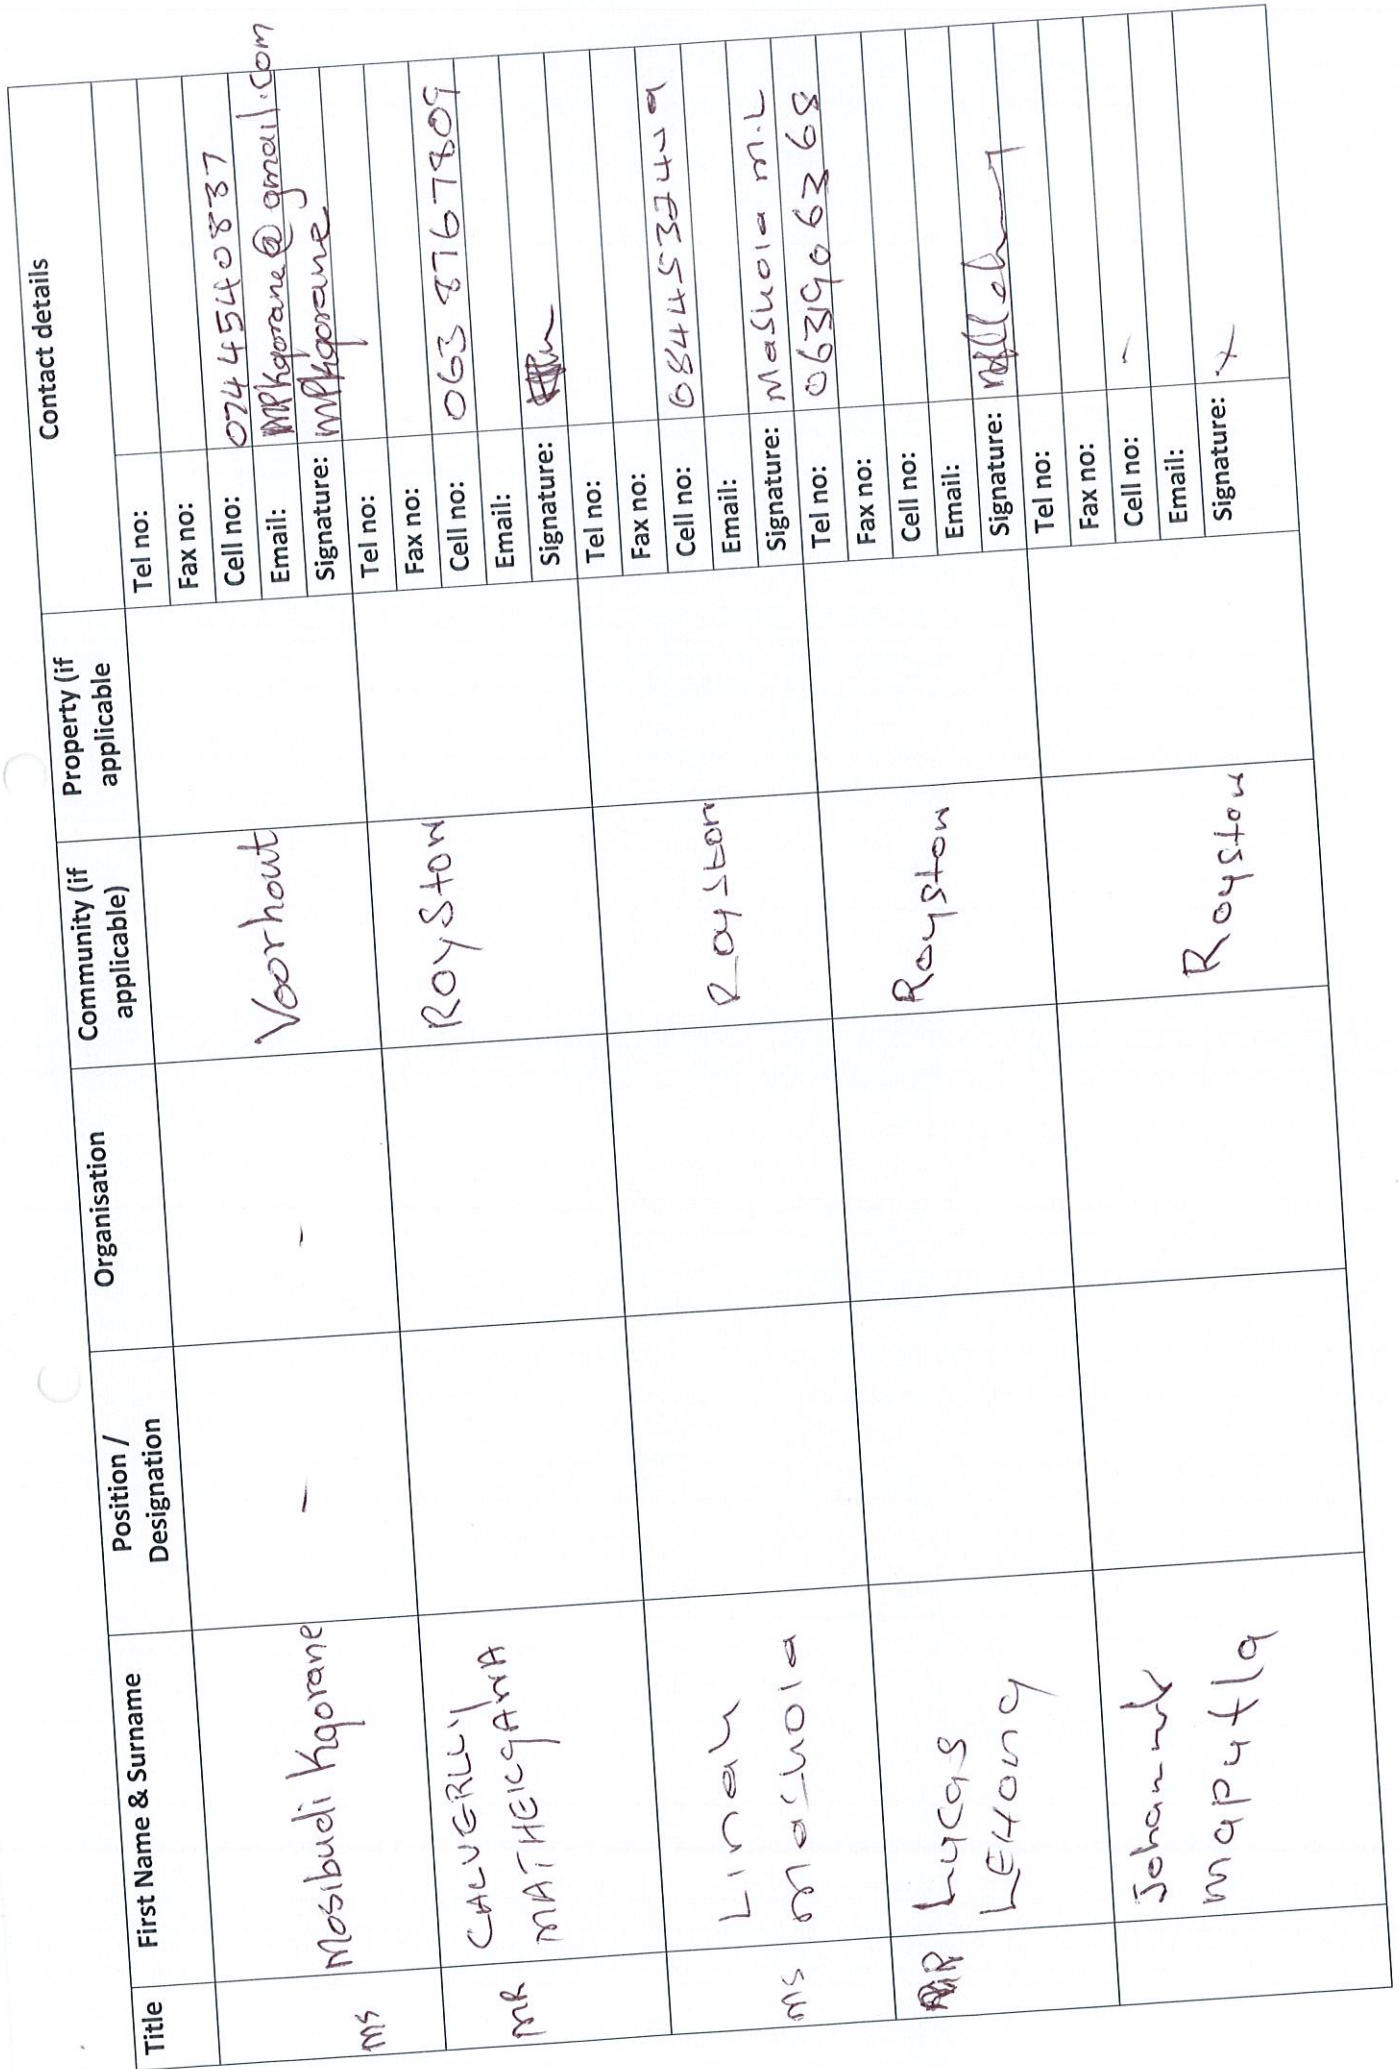 Title First Name & Surname Position / Designation Organisation Community (if applicable) Property (if applicable Contact details
ms Mosibudi Kgorane - - Voorhout
Tel no:
Fax no:
Cell no: 0744540837
Email: MPkgorane@gmail.com
Signature: MPkgorane
MR CALVERLLY
MATHEKGANA
Royston
Tel no:
Fax no:
Cell no: 063 8767809
Email:
Signature:
ms Linah
Mashola
Royston
Tel no:
Fax no:
Cell no:
Email:
Signature: Mashola M.L
Lucas
Royston
Tel no: 0631906368
Fax no:
Cell no:
Email:
Signature:
maputla
Royston
Tel no:
Fax no:
Cell no: -
Email:
Signature: x